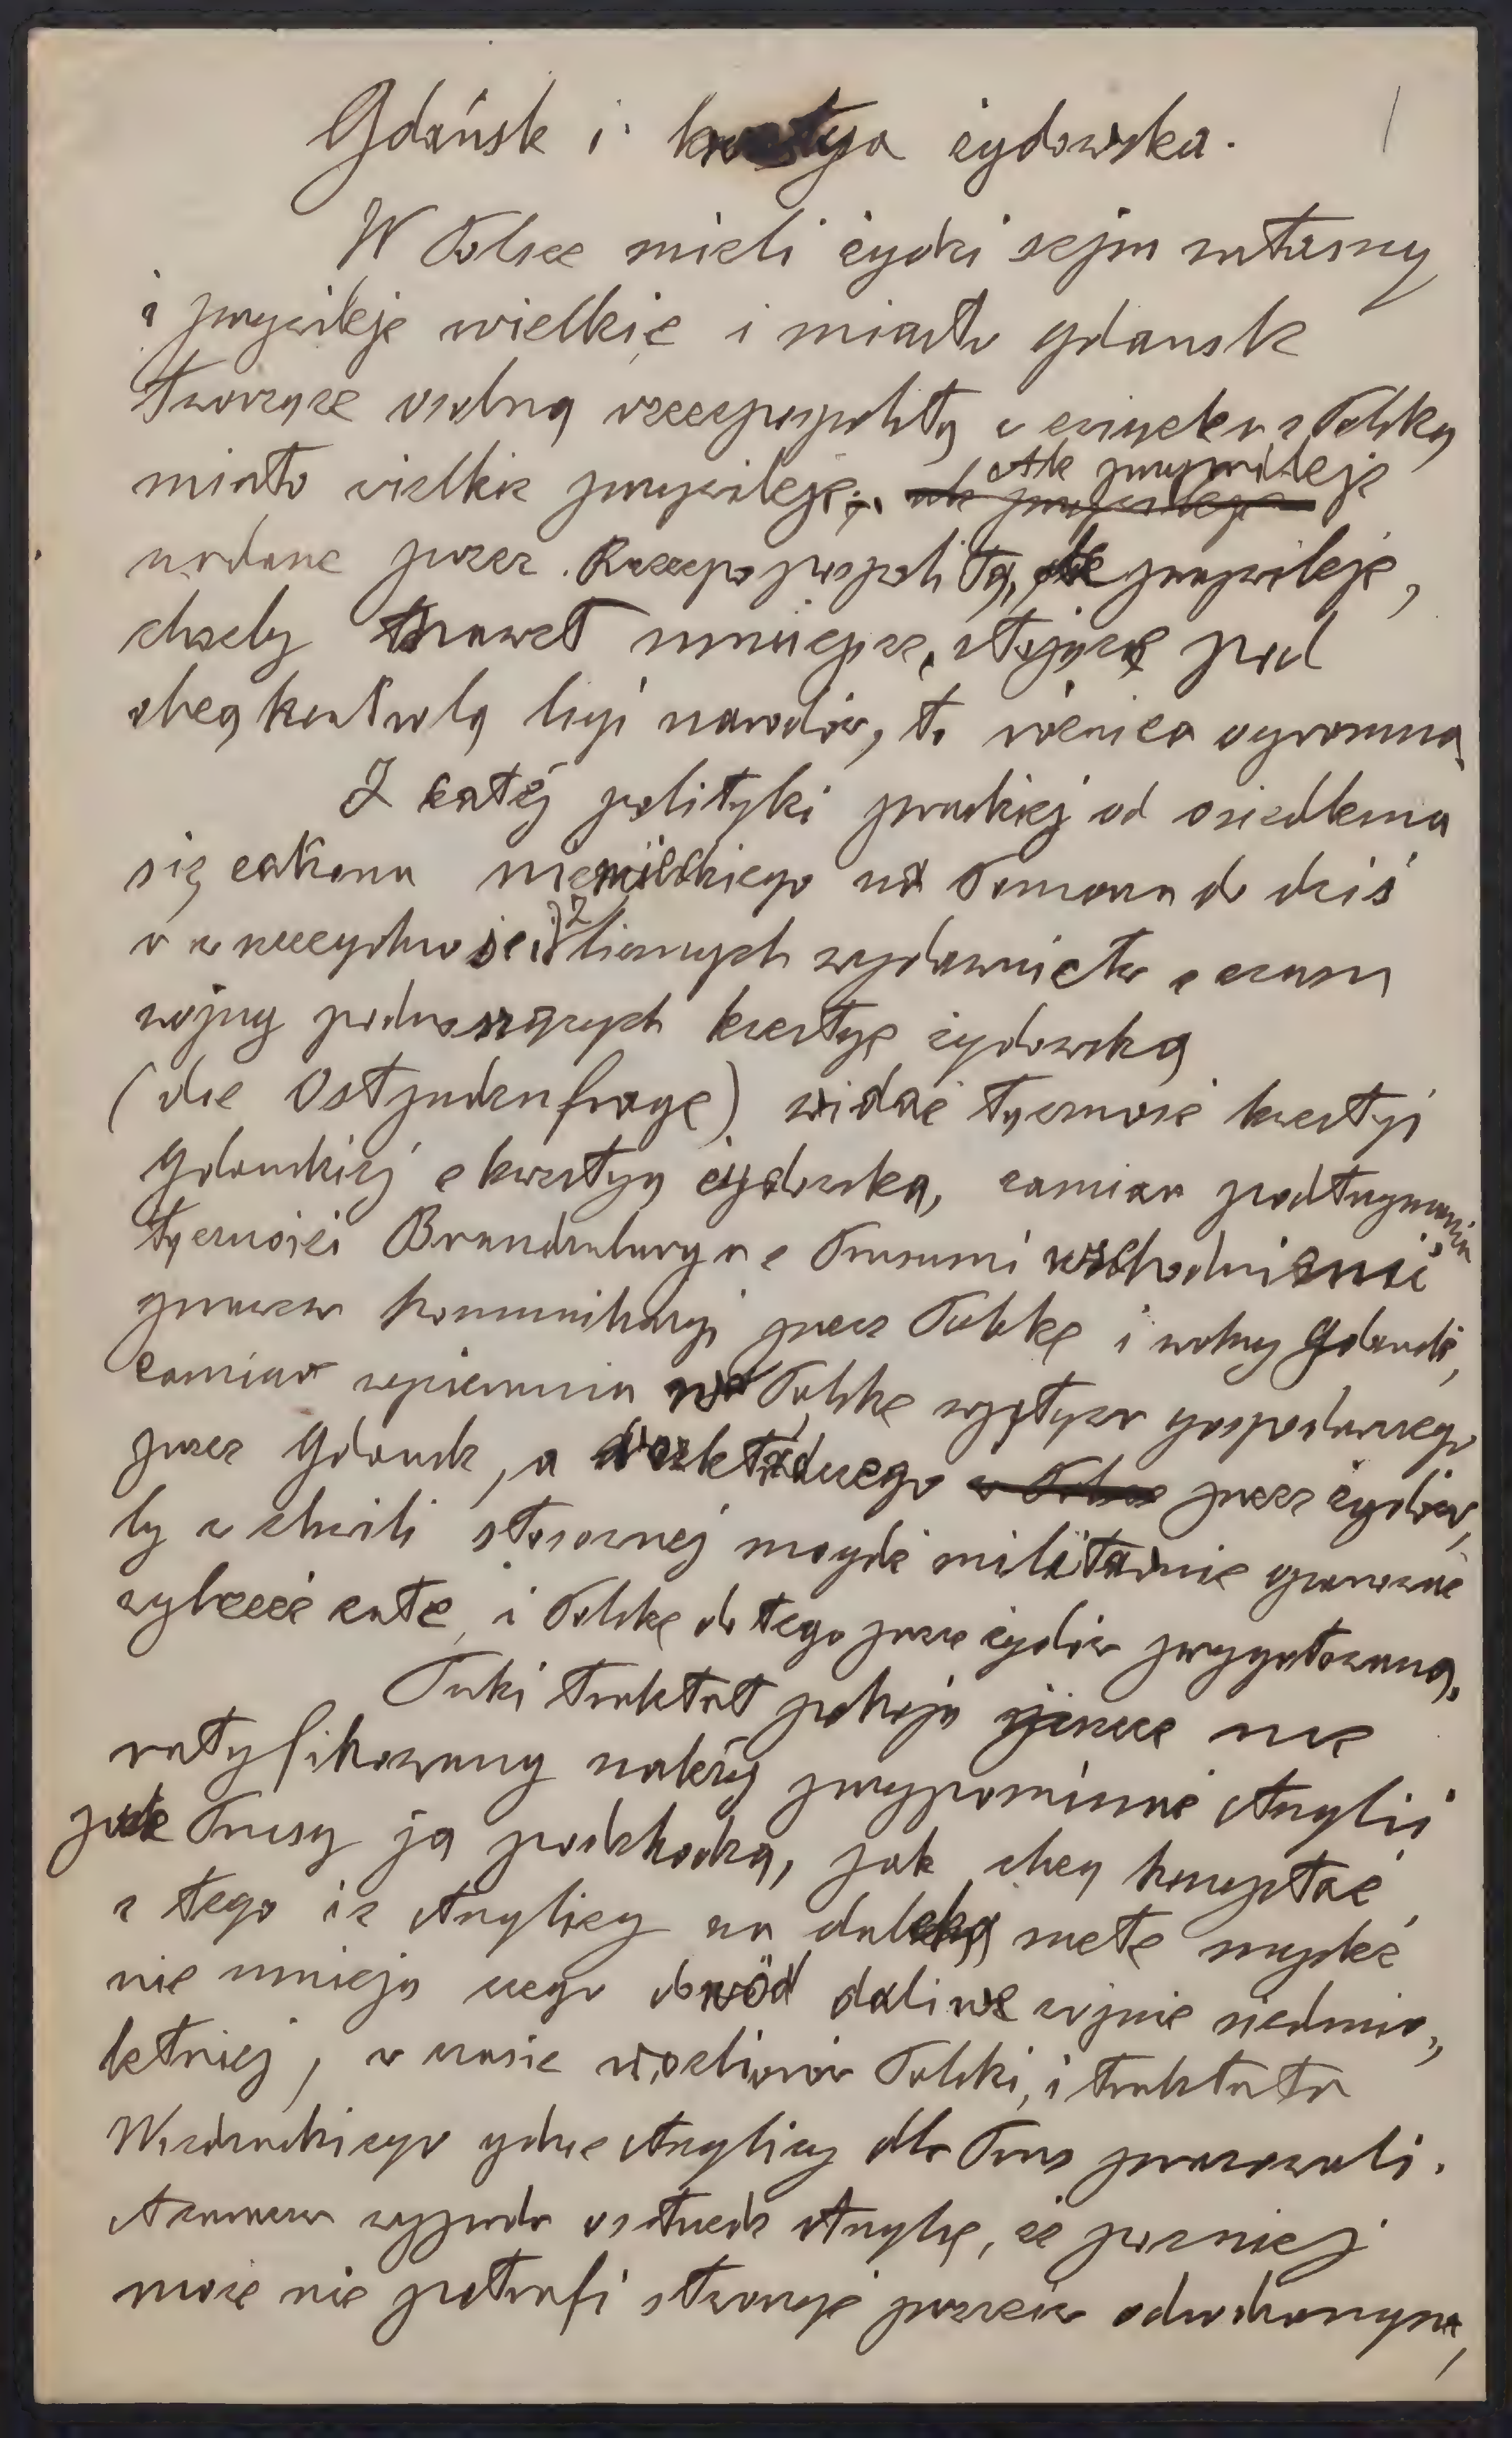 Gdańsk i kwestya żydowska.
W Polsce mieli żydzi sejm własny
i przywileje wielkie i miasto gdansk
tworzące osobną rzeczpospolitą w związku z Polską
miało wielkie przywileje; Ale przywileje
nadane przez Rzeczpospolitą, ale przywileje,
choćby nawet mniejsze, stojące pod
obcą kontrolą ligi narodów, to różnica ogromna.
Z całej polityki pruskiej od osiedlenia
się zakonu niemieckiego na Pomorzu do dziś
w rzeczywistości z licznych wydawnictw z czasu
wojny poduszczających kwestyę żydowską
(die Ostjudenfrage) widać łączność kwestyi
gdanskiej z kwestyą żydowską, zamiar podtrzymania
łączności Brandenburga z Prusami wschodniemi
prawem komunikacyi przez Polskę i wolny Gdańsk,
zamiar wywierania na Polskę wpływu gospodarczego
przez Gdansk, a rozkładczego przez żydów,
by w chwili stosownej mogli militarnie opanować
wybrzeże całe, i Polskę do tego przez żydów przygotowaną.
Taki traktat pokoju jeszcze nie
ratyfikowany należy przypominać Anglii
jak Prusy ją podchodzą, jak chcą korzystać
z tego iż Anglicy na daleką metę myśleć
nie umieją czego dowód dali we wojnie siedmio„
letniej, w czasie rozbiorów Polski, i traktatu
Wiedenskiego gdzie Anglicy dla Prus pracowali.
A zawsze wypada ostrzedz Anglię, że pozniej
może nie potrafi stworzyć przeciw odwiecznym,